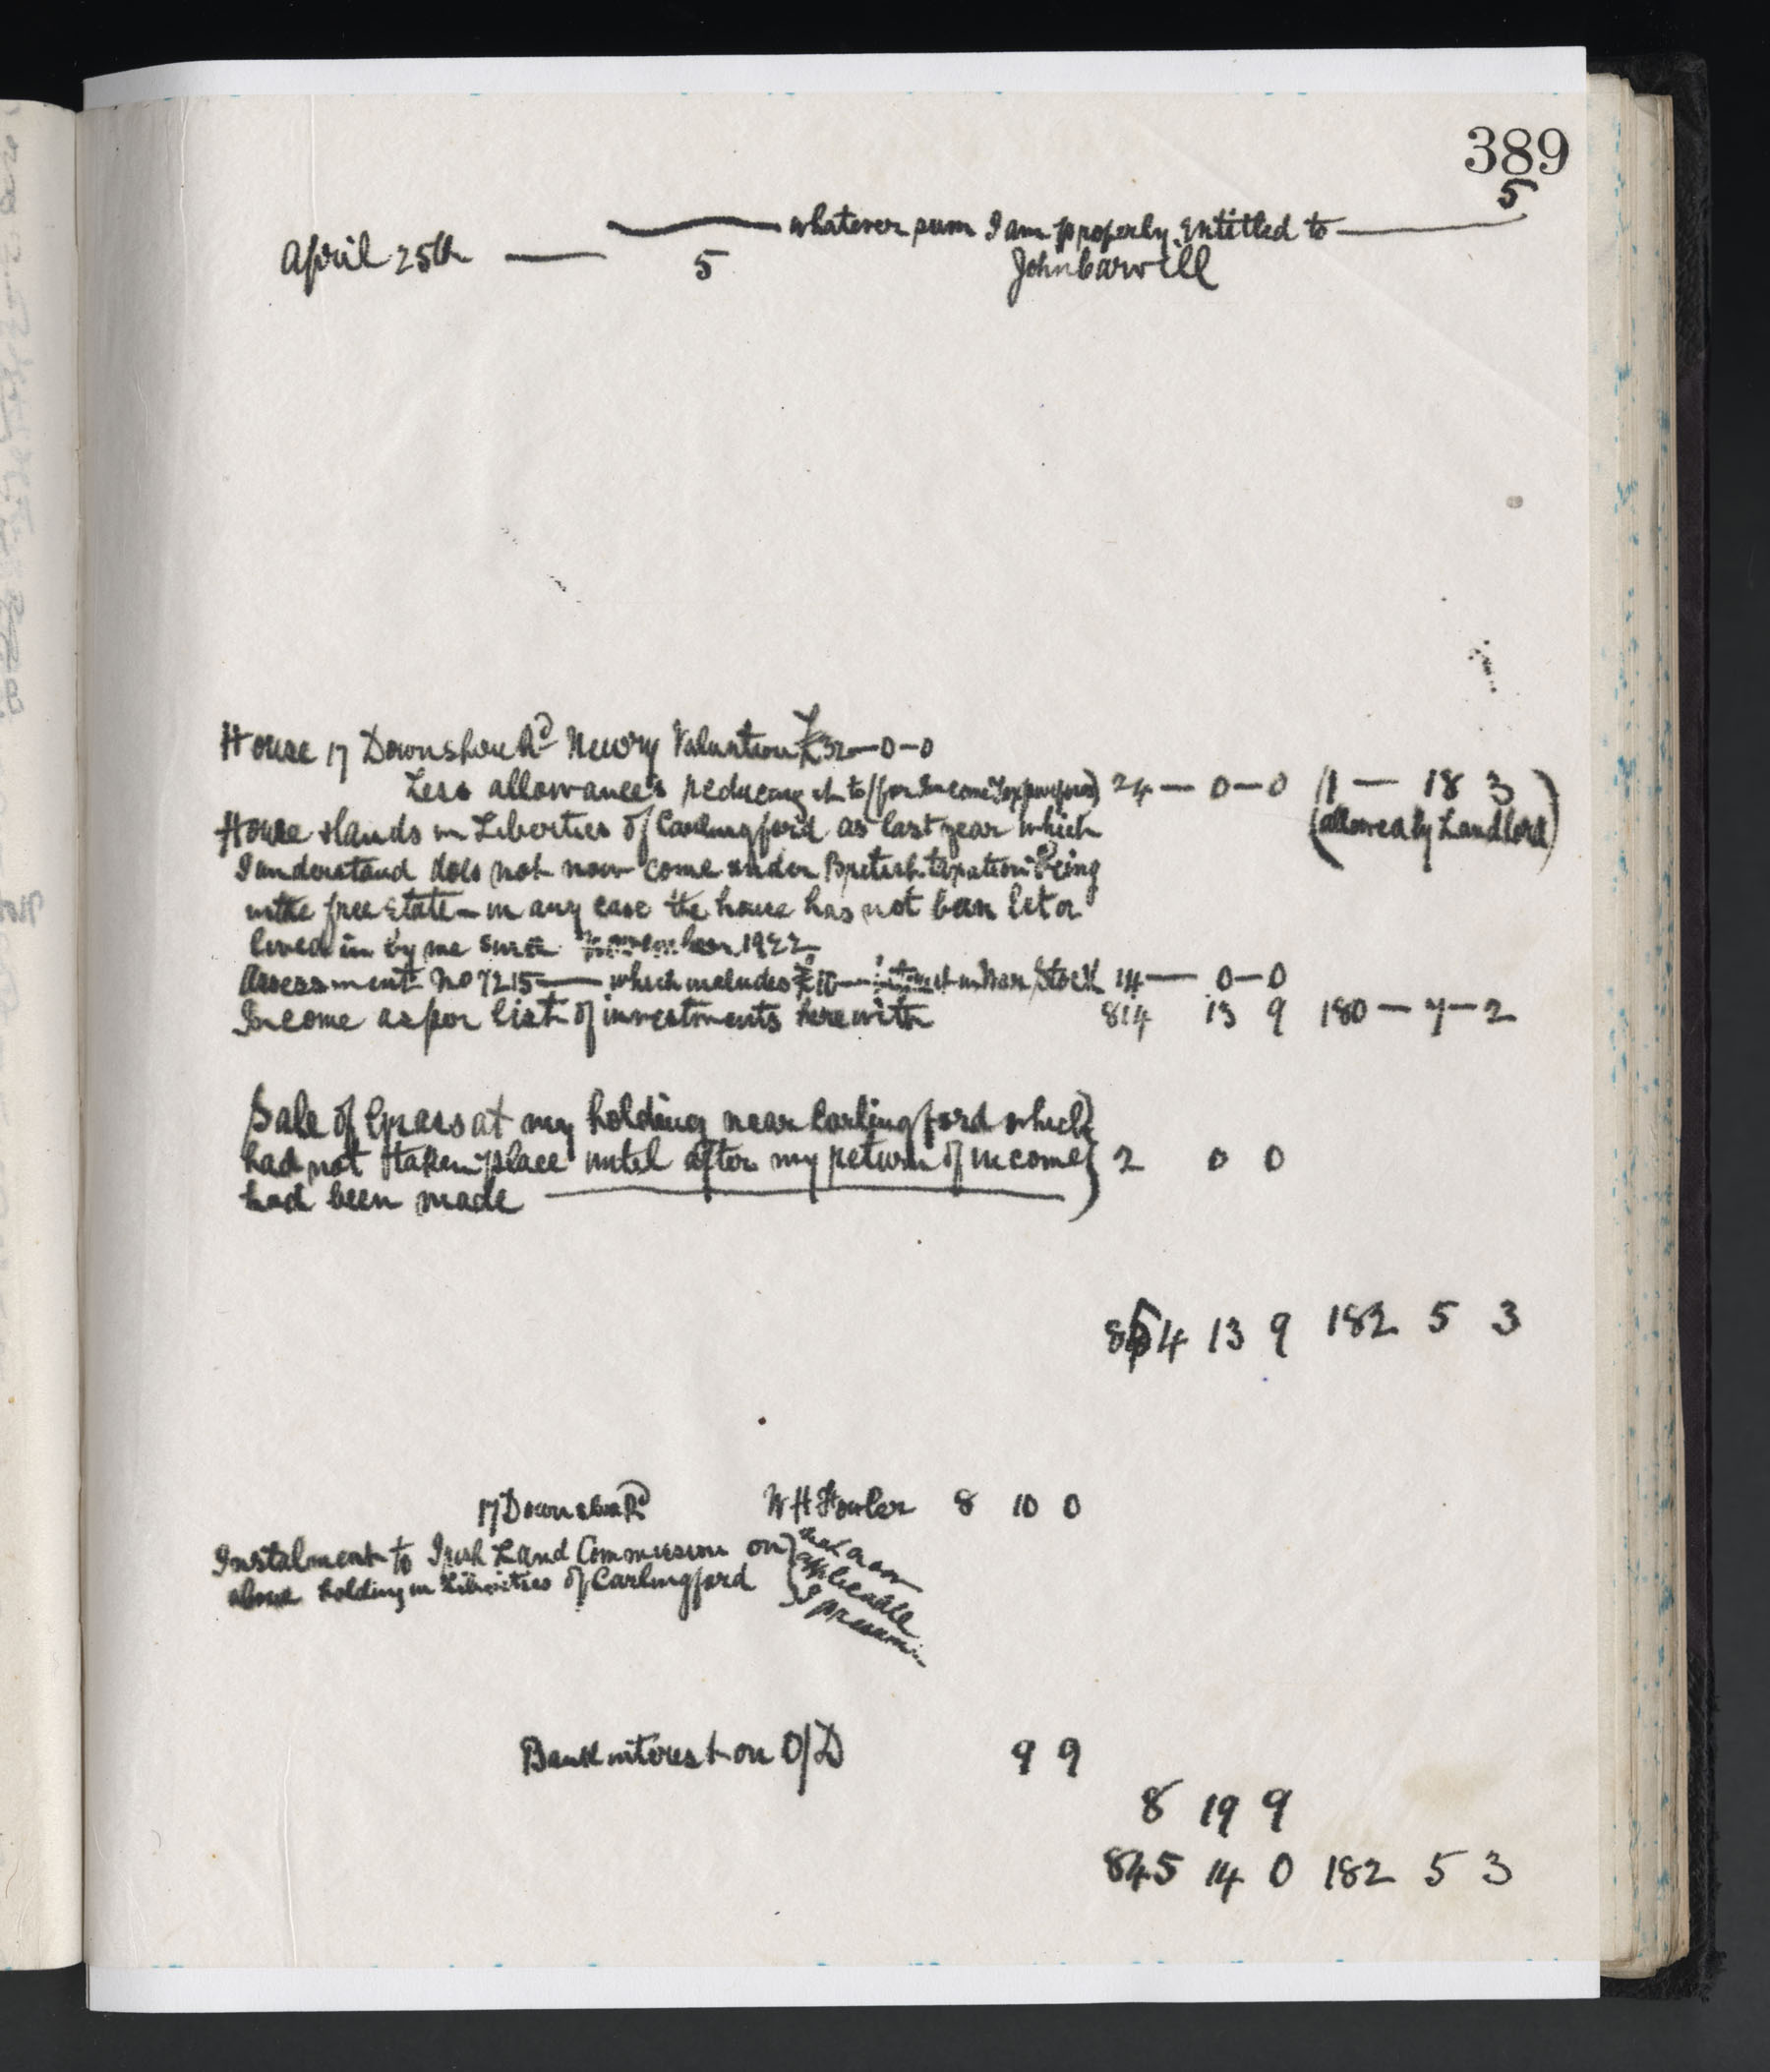 389
5
whatever sum I am properly entitled to
April 25th — 5 John Carvill
House 17 Downshire Rd Newry Valuation £32—0—0
Less allowances reducing it to (for Income Tax purposes) 24 — 0—0 (1 — 18 3)
House & lands in Liberties of Carlingford as last year which (allowed by Landlord)
I understand does not now come under British taxation being
in the free State — in any case the house has not been let or
lived in by me since November 1922.
Assessment No 7215 — which includes £10 — interest on War Stock 14 — 0—0
Income as per list of investments herewith 814 13 9 180 — 7 — 2
Sale of Grass at my holding near Carlingford which
had not taken place until after my return of income 2 0 0
had been made
854 13 9 182 5 3
17 Downshire Rd W H Fowler 8 10 0
Instalment to Irish Land Commission on } not now
above holding in Liberties of Carlingford } applicable
I presume
Bank interest on O/D 9 9
8 19 9
845 14 0 182 5 3